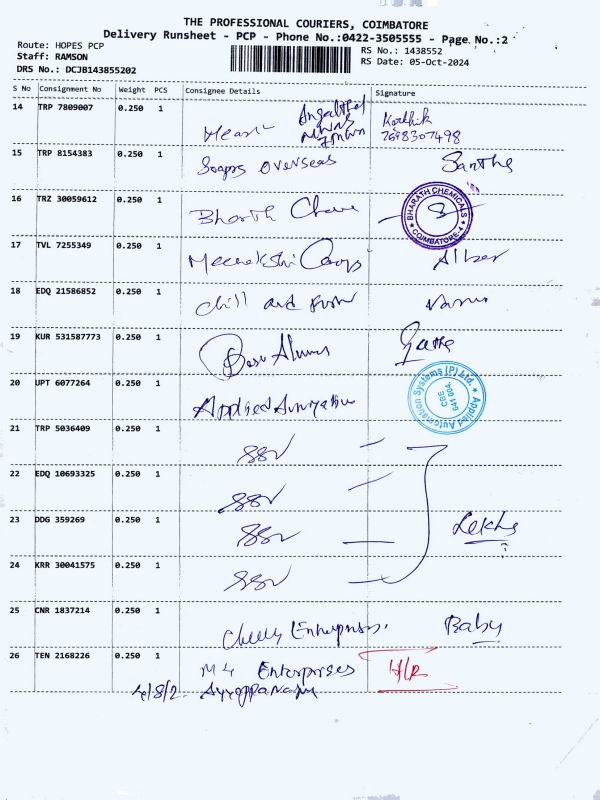 THE PROFESSIONAL COURIERS, COIMBATORE
Delivery Runsheet - PCP - Phone No.:0422-3505555 - Page No.:2
Route: HOPES PCP
RS No.: 1438552
Staff: RAMSON
RS Date: 05-Oct-2024
DRS No.: DCJB143855202
S No Consignment No Weight PCS Consignee Details Signature
14 TRP 7809007 0.250 1 Karthik
7698307498
15 TRP 8154383 0.250 1 Soaprs Overseas Santhe
16 TRZ 30059612 0.250 1 BHARATH CHEMICALS COIMBATORE-4
17 TVL 7255349 0.250 1 Meenakshi
18 EDQ 21586852 0.250 1 chill and
19 KUR 531587773 0.250 1
20 UPT 6077264 0.250 1 Applied Applied Automation Systems (P) Ltd. CBE 641 004.
21 TRP 5036409 0.250 1 SSV
22 EDQ 10693325 0.250 1 SSV
23 DDG 359269 0.250 1 SSV Lekha
24 KRR 30041575 0.250 1 SSV
25 CNR 1837214 0.250 1 Enterprises. Baby
26 TEN 2168226 0.250 1 M4 Enterprises H/R
4/8/2.